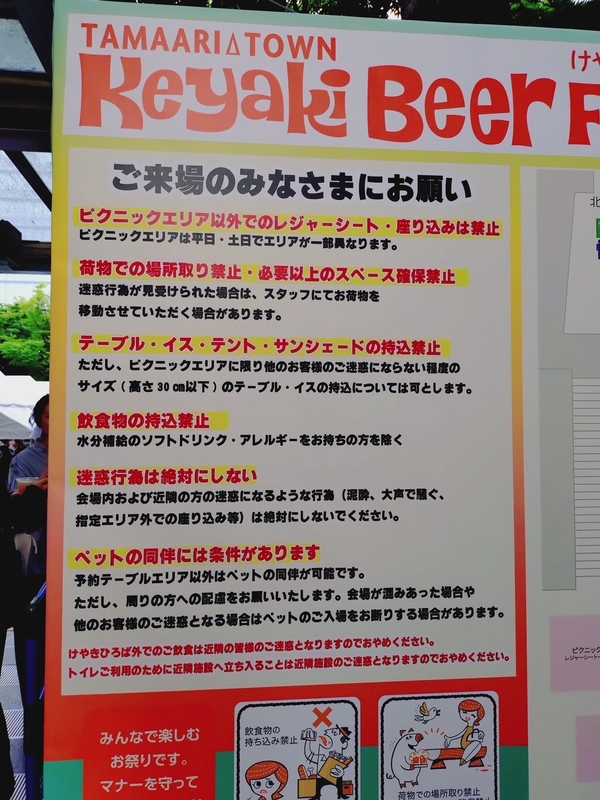 TAMAARI△TOWN
けや
Keyaki Beer F
ご来場のみなさまにお願い
ピクニックエリア以外でのレジャーシート・座り込みは禁止
ピクニックエリアは平日・土日でエリアが一部異なります。
荷物での場所取り禁止・必要以上のスペース確保禁止
迷惑行為が見受けられた場合は、スタッフにてお荷物を
移動させていただく場合があります。
テーブル・イス・テント・サンシェードの持込禁止
ただし、ピクニックエリアに限り他のお客様のご迷惑にならない程度の
サイズ(高さ30cm以下)のテーブル・イスの持込については可とします。
飲食物の持込禁止
水分補給のソフトドリンク・アレルギーをお持ちの方を除く
迷惑行為は絶対にしない
会場内および近隣の方の迷惑になるような行為(泥酔、大声で騒ぐ、
指定エリア外での座り込み等)は絶対にしないでください。
ペットの同伴には条件があります
予約テーブルエリア以外はペットの同伴が可能です。
ただし、周りの方への配慮をお願いいたします。会場が混みあった場合や
他のお客様のご迷惑となる場合はペットのご入場をお断りする場合があります。
けやきひろば外でのご飲食は近隣の皆様のご迷惑となりますのでおやめください。
トイレご利用のために近隣施設へ立ち入ることは近隣施設のご迷惑となりますのでおやめください。
みんなで楽しむ
お祭りです。
マナーを守って
飲食物の
持ち込み禁止
荷物での場所取り禁止
北
ピクニック
レジャーシート・